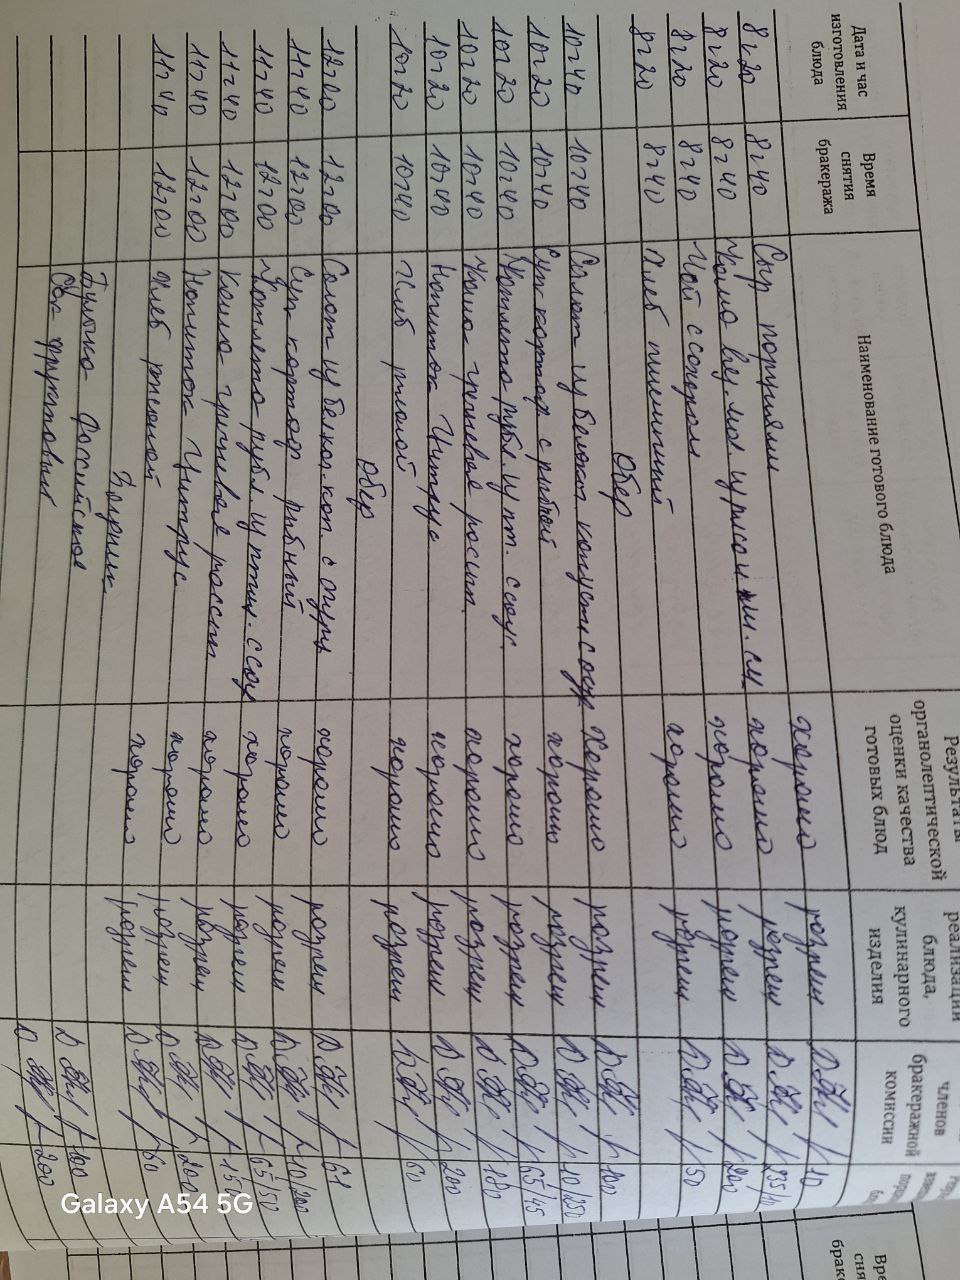 Дата и час изготовления блюда | Время снятия бракеража | Наименование готового блюда | Результаты органолептической оценки качества готовых блюд | реализации блюда, кулинарного изделия | членов бракеражной комиссии
8-20 8-40 Сыр порциями хорошо разреш 10
8-20 8-40 Каша хорошо разреш
8-20 8-40 Чай с сахаром хорошо разреш 200
8-20 8-40 Хлеб пшеничный хорошо разреш 50
Обед
10-40 10-40 Салат из белокач. капусты с хорошо разреш 100
10-20 10-40 Суп картоф с рыбой хорошо разреш 10/250
10-20 10-40 Котлета рубл. из пт. с соус. хорошо разреш 65/45
10-20 10-40 Каша гречневая рассып. хорошо разреш 180
10-20 10-40 Напиток Цитрус хорошо разреш 200
10-20 10-40 Хлеб ржаной хорошо разреш 60
Обед
12-00 12-00 Салат из белок. кап. с огурц хорошо разреш 61
11-40 12-00 Суп картоф рыбный хорошо разреш 10/200
11-40 12-00 Котлета рубл. из птиц. с соус хорошо разреш 65/50
11-40 12-00 Каша гречневая рассып хорошо разреш
11-40 12-00 Напиток Цитрус хорошо разреш 200
11-40 12-00 Хлеб ржаной хорошо разреш 60
Полдник
Булочка Российская 100
Сок фруктовый 200
Время
Galaxy A54 5G